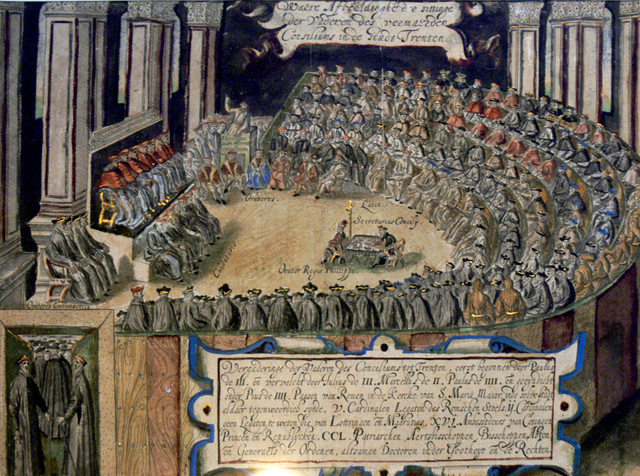 Waere Afbeeldinghe d'e sittinge
der Vaderen des vermaerden
Consiliums in de Stadt Trenten
Oratores
Legati
Secretarius Concilÿ
Orator Regis Philippi
Vergaderinge der Vaderen des Conciliums tot Trenten, eerst begonnen door Paulus
de III. en vervolcht door Julius de III. Marcellus de II. Paulus de IIII. en
onder Pius de IIII. Pausen van Romen in de Kercke van S. Maria Maior,
aldaer tegenwoordich synde, V. Cardinalen Legaten des Roomschen Stoels, IJ. Cardinalen
geen Legaten, te weten die van Lottringen en Madrutius, XVJ. Ambassadeurs van Coningen
Princen en Republycken, CCL. Patriarchen Aertsbisschoppen, Bisschoppen, Abten
en Generaels der Ordenen, altsamen Doctoren in der Godtheyt en de Rechten